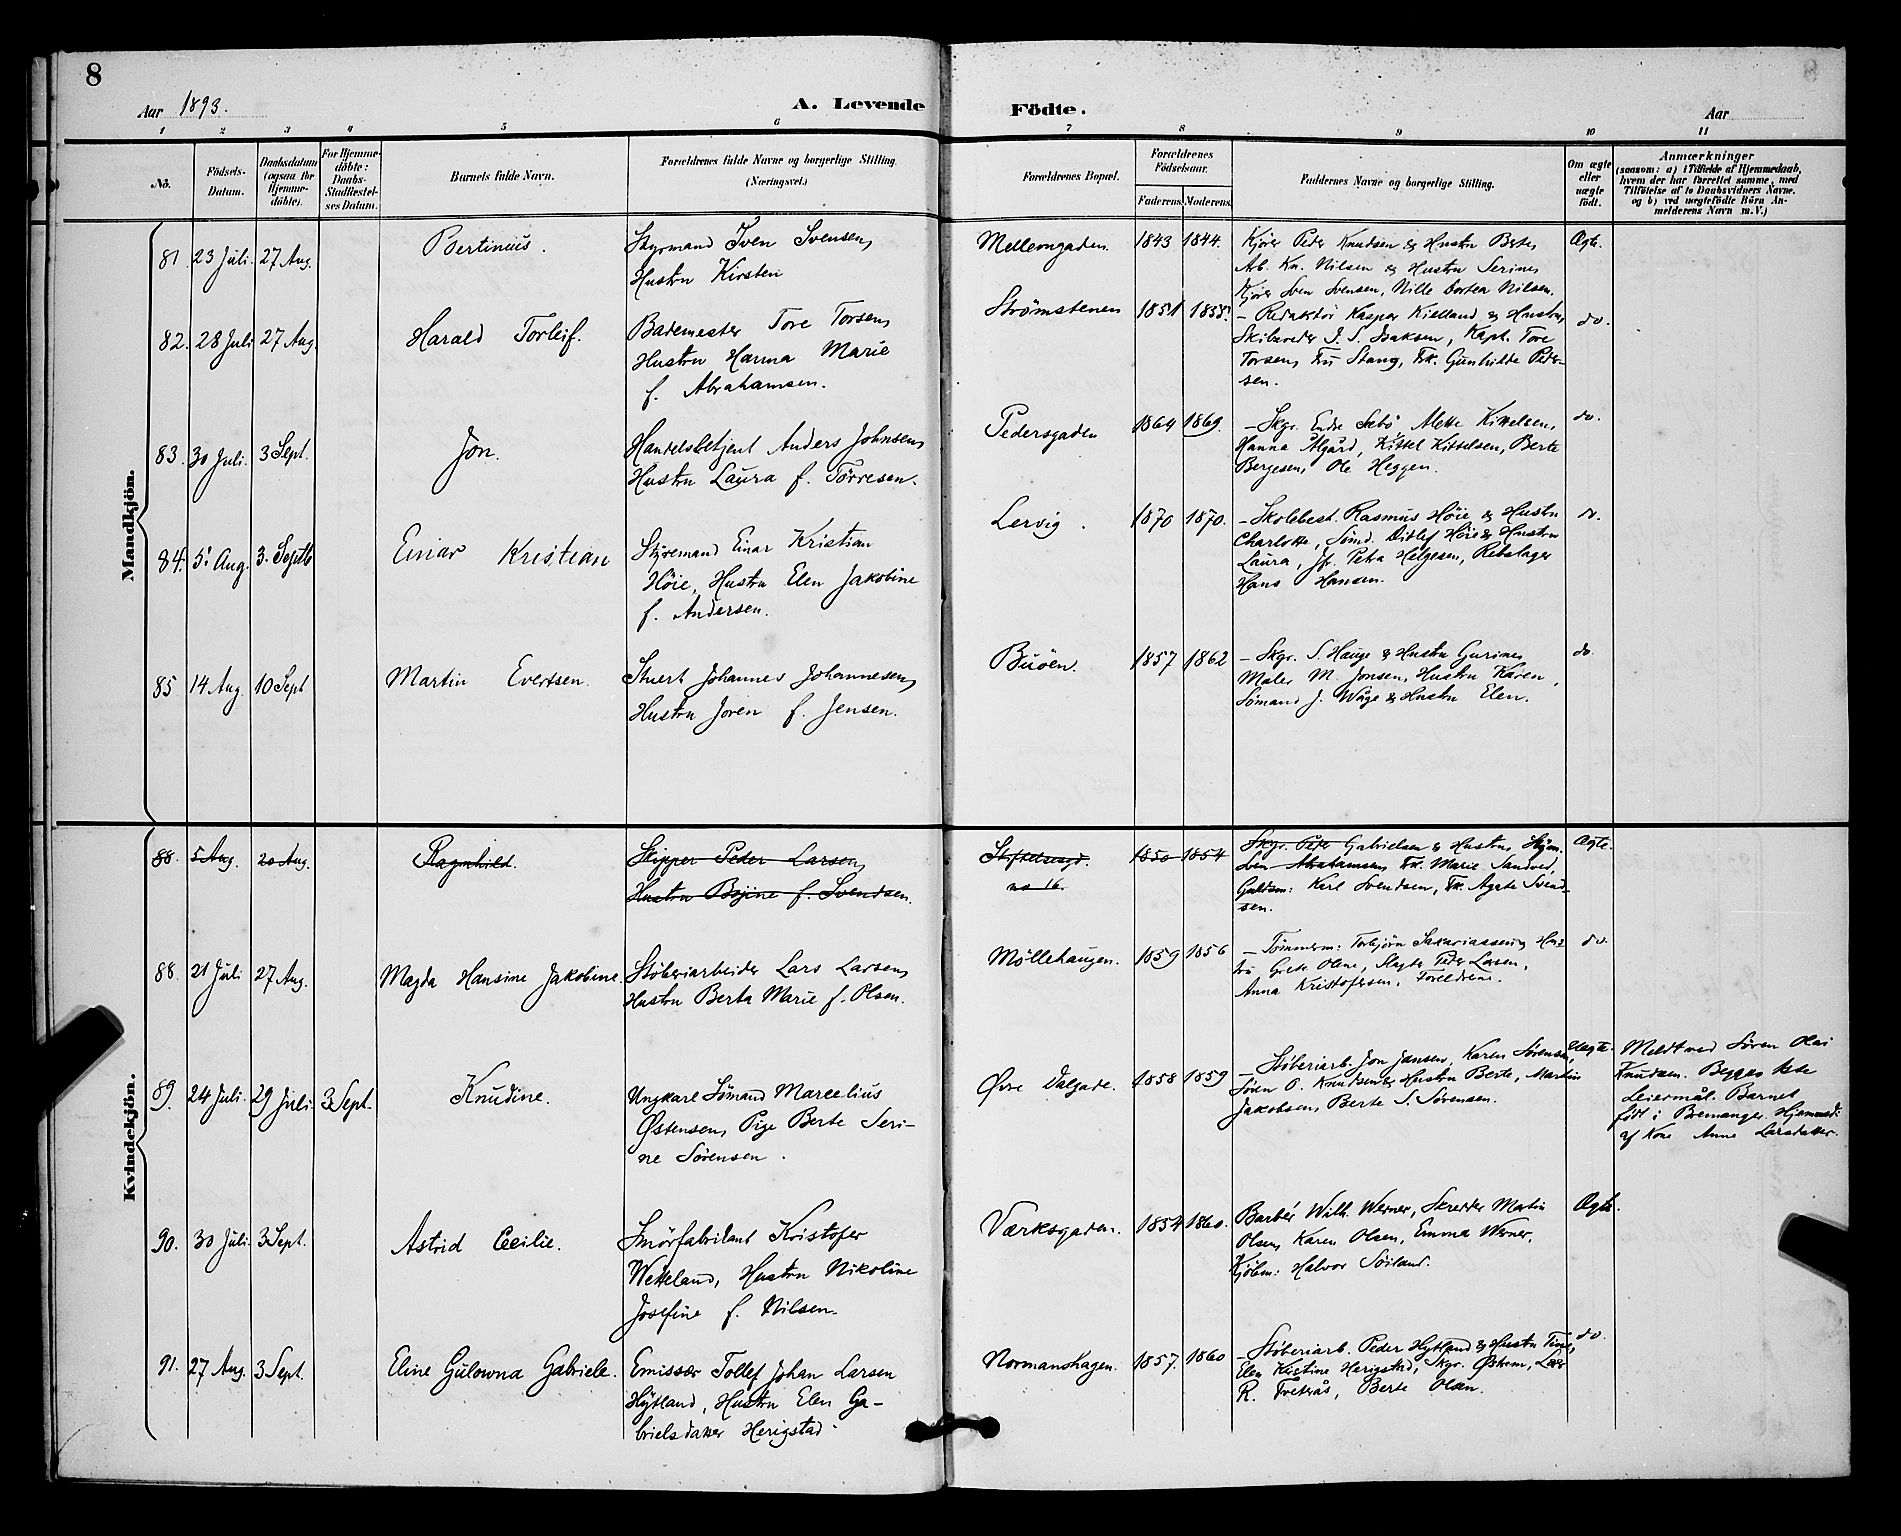 8
Aar 1893.
A. Levende Födte.
Aar
1 2 3 4 5 6 7 8 9 10 11
No.
Födsels-Datum.
Daabsdatum (ogsaa for Hjemme-döbte).
For Hjemme-döbte: Daabs-Stadfæstel-ses Datum.
Barnets fulde Navn.
Forældrenes fulde Navne og borgerlige Stilling. (Næringsvei.)
Forældrenes Bopæl.
Forældrenes Födselsaar.
Faderens. Moderens.
Faddernes Navne og borgerlige Stilling.
Om ægte eller uægte födt.
Anmærkninger
(saasom: a) i Tilfælde af Hjemmedaab,
hvem der har forrettet samme, med
Tilföielse af to Daabsvidners Navne.
og b) ved uægtefödte Börn An-
melderens Navn m. V.)
Mandkjön.
81. 23 Juli. 27 Aug.
Bertinius.
Styrmand Iven Svensen,
Hustru Kirsten
Mellemgaden. 1843 1844.
Kjører Peder Knudsen & Hustru Berte,
Arb. Kn. Nilsen & Hustru Serine,
Kjører Sven Svensen, Nille Dortea Nilsen.
Ægte.
82. 28 Juli 27 Aug.
Harald Torleif.
Bademester Tore Torsen,
Hustru Hanna Marie
f. Abrahamsen.
Strømstenen 1851 1858.
– Redaktør Kasper Kielland & Hustru,
Skibsreder J. S. Isaksen, Kapt. Tore
Torsen, Fru Stang, Frk. Gunhilde Peder-
sen.
do.
83. 30 Juli. 3 Sept.
Jon.
Handelsbetjent Anders Johnsen,
Hustru Laura f. Tørresen.
Pedersgaden 1864 1869.
– Skgr. Endre Sebø, Alette Kittelsen,
Hanna Ålgård, Kittel Kittelsen, Berte
Bergesen, Ole Heggen.
do.
84. 5. Aug. 3. Septb
Einar Kristian
Styremand Einar Kristian
Høie, Hustru Elen Jakobine
f. Andersen.
Lervig. 1870 1870.
– Skolebest. Rasmus Høie & Hustru
Charlotte, Sømd. Ditlef Höie & Hustru
Laura, Jfr. Petra Helgesen, Rebslager
Hans Hansen.
do.
85 14 Aug. 10 Sept
Martin Evertsen.
Stuert Johannes Johannesen,
Hustru Joren f. Jensen.
Buöen. 1857 1862
– Skgr. S. Hauge & Hustru Gurine,
Maler M. Jonsen, Hustru Karen,
Sømand J. Våge & Hustru Elen.
do.
Kvindekjön.
88. 5 Aug. 20 Aug.
Ragnhild.
Skipper Peder Larsen,
Hustru f. Svendsen.
Stiftelsesgd.
no 16.
1850 1854
Skgr. Peder Gabrielsen & Hustru, Styrm.
Sven Abrahamsen, Frk. Marie Sandved,
Guldsm: Karl Svendsen, Frk. Agate Svend-
sen.
Ægte.
88. 21 Juli 27 Aug.
Magda Hansine Jakobine.
Støberiarbeider Lars Larsen,
Hustru Berta Marie f. Olsen.
Möllehaugen. 1859 1856
– Tømmerm: Torbjørn Sakariassen & Hus-
tru Grete Oline, Slagter Peder Larsen,
Anna Kristofersen, Foreldrene.
do.
89. 24 Juli. 29 Juli. 3 Sept.
Knudine.
Ungkarl Sømand Marcelius
Østensen, Pige Berte Seri-
ne Sørensen.
Øvre Dalgade. 1858 1859
– Støberiarb. Jon Jansen, Karen Sørensen,
Søren O. Knudsen & Hustru Berte, Martin
Jakobsen, Berte S. Sørensen.
Uægte.
Meldt ved Søren Olai
Knudsen. Begges 1ste
Leiermål. Barnet
født i Bremanger. Hjemmed:
af Kone Anne Larsdatter.
90. 30 Juli. 3 Sept.
Astrid Cecilie.
Smörfabrikant Kristofer
Wetteland, Hustru Nikoline
Josefine f. Nilsen.
Værksgaden. 1854 1860.
Barbér Wilh. Werner, Skredder Martin
Olsen, Karen Olsen, Emma Werner,
Kjøbm: Halvor Söiland.
Ægte.
91. 27 Aug. 3 Sept.
Eline Gulowna Gabriele.
Emissær Tollef Johan Larsen
Hytland, Hustru Elen Ga-
brielsdatter Herigstad.
Normanshagen. 1857. 1860
– Støberiarb. Peder Hytland & Hustru Tine,
Elen Kristine Herigstad, Skgr. Østrem,
R. Tveterås, Berte Olsen.
do.